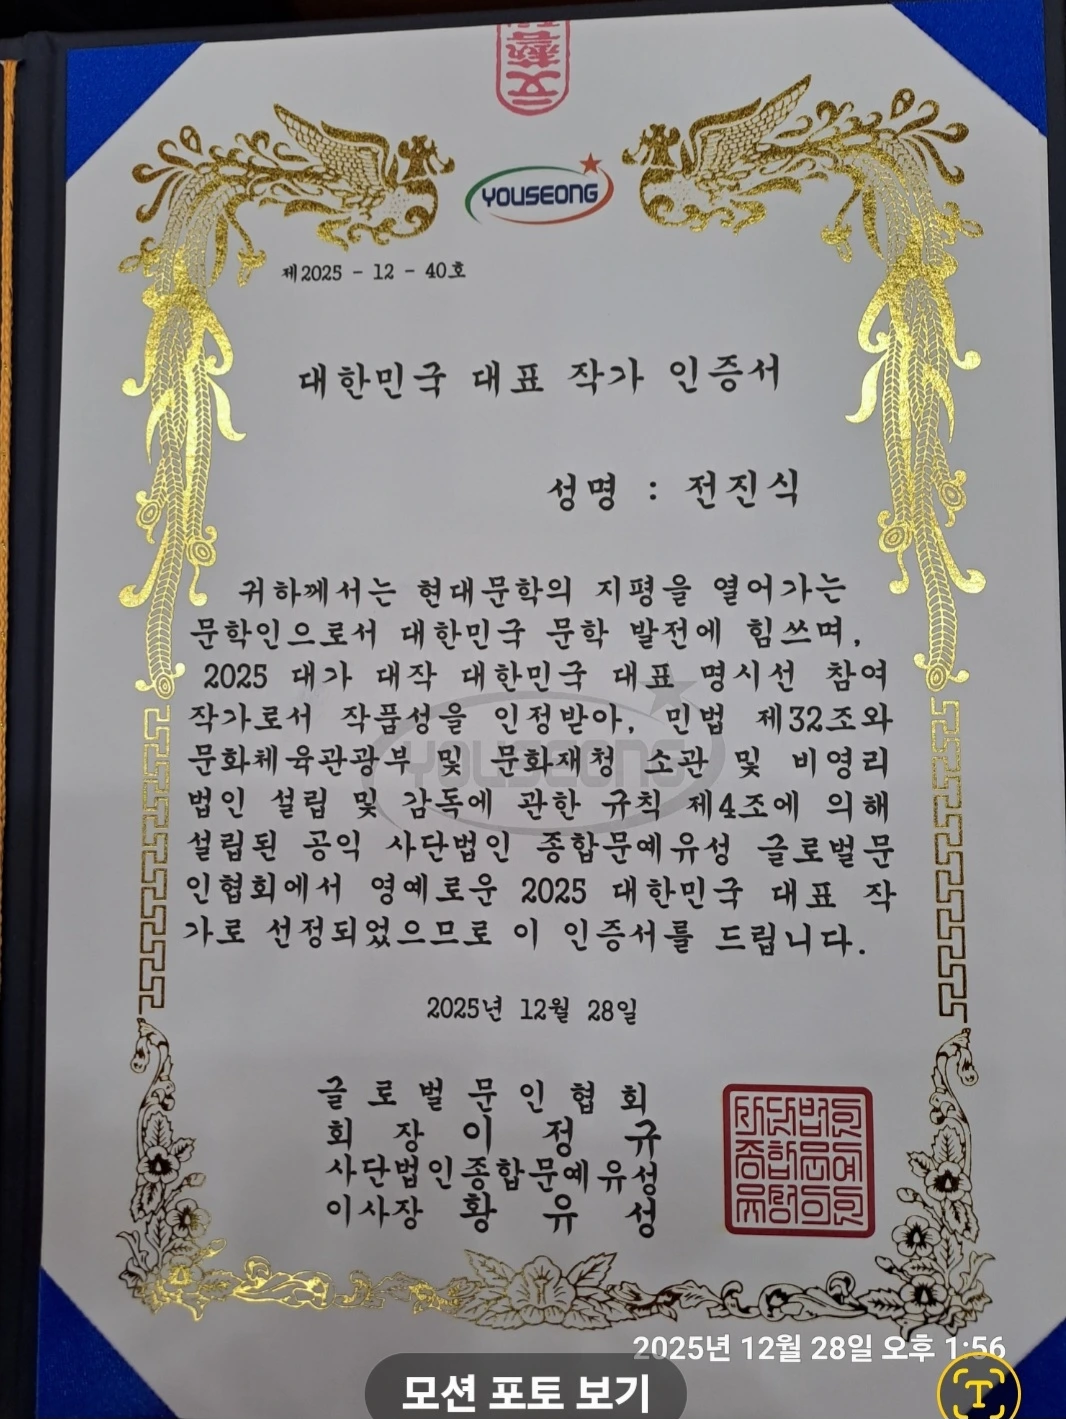 YOUSEONG
제2025 - 12 - 40호
대한민국 대표 작가 인증서
성명 : 전진식
귀하께서는 현대문학의 지평을 열어가는
문학인으로서 대한민국 문학 발전에 힘쓰며,
2025 대가 대작 대한민국 대표 명시선 참여
작가로서 작품성을 인정받아, 민법 제32조와
문화체육관광부 및 문화재청 소관 및 비영리
법인 설립 및 감독에 관한 규칙 제4조에 의해
설립된 공익 사단법인 종합문예유성 글로벌문
인협회에서 영예로운 2025 대한민국 대표 작
가로 선정되었으므로 이 인증서를 드립니다.
YOUSEONG
2025년 12월 28일
글로벌문인협회
회 장 이 정 규
사단법인종합문예유성
이사장 황 유 성
2025년 12월 28일 오후 1:56
모션 포토 보기
T